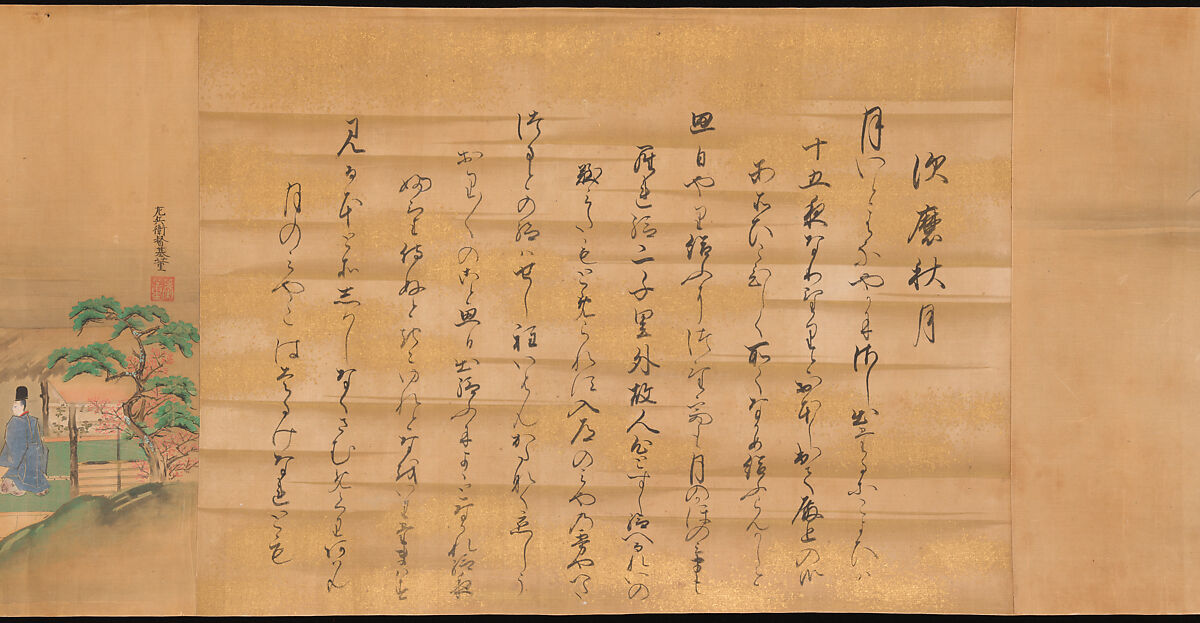 須磨秋月
月いとはなやかにさし出たるにこよひは
十五夜なりけりとおほしいてゝ殿上の御
あそひこひしく所々なかめ給ふらんかしと
思日やり給ふにつけても月のかほのみまも
られ給二千里外故人心とすし給へるれいの
涙もとゝめられす入道のみやの霧やへたつ
るとの給はせし程いはんかたなく恋しう
おり〱のこと思日出給ふによゝとなかれ給夜
ふけ侍ぬときこゆれとなをいり給はす
見る程そしはしなくさむめくりあはん
月のみやこははるかなれとも
左兵衛督基董